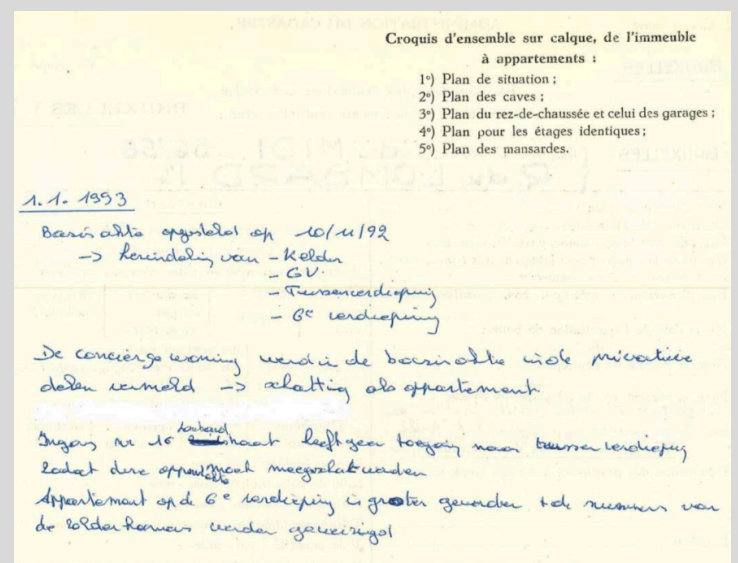 Croquis d'ensemble sur calque, de l'immeuble
à appartements :
1º) Plan de situation ;
2º) Plan des caves ;
3º) Plan du rez-de-chaussée et celui des garages ;
4º) Plan pour les étages identiques ;
5º) Plan des mansardes.
1.1.1993
Basisakte opgesteld op 10/11/92
-> herindeling van - Kelder
- GV
- Tussenverdieping
- 6e verdieping
De conciërgewoning werd in de basisakte in de privatieve
delen vermeld -> schatting als appartement.
Ingang nr 16 Lombard straat heeft geen toegang naar tussenverdieping
zodat deze oppervlakte meegeschat werden
Appartement op de 6e verdieping is groter geworden + de nummers van
de zolderkamers werden gewijzigd